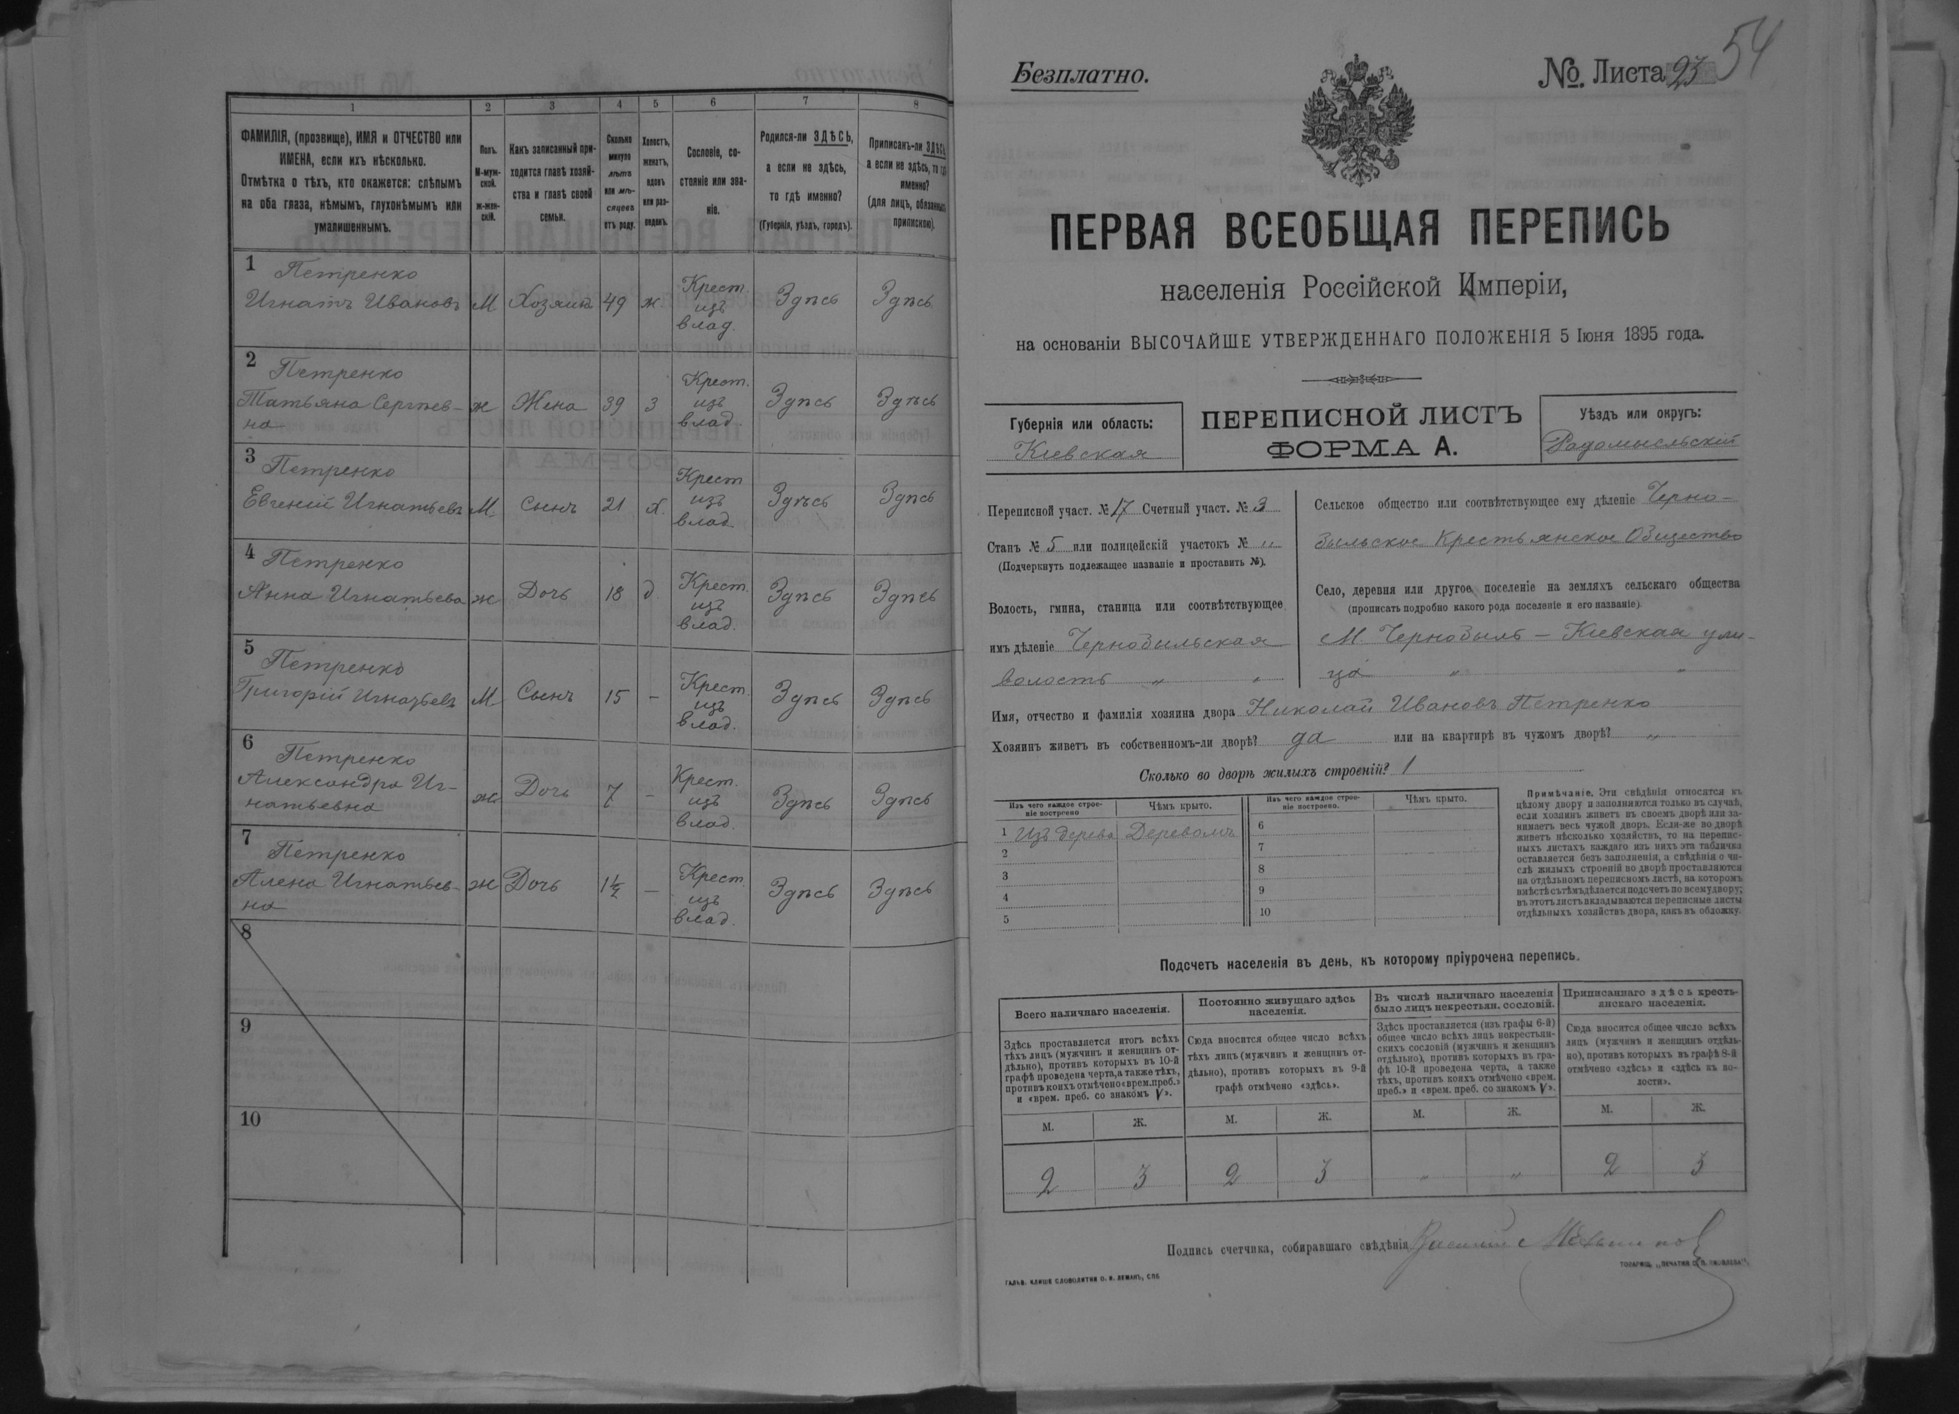 1
2
3
4
5
6
7
8
ФАМИЛІЯ, (прозвище), ИМЯ и ОТЧЕСТВО или
ИМЕНА, если ихъ нѣсколько.
Отмѣтка о тѣхъ, кто окажется: слѣпымъ
на оба глаза, нѣмымъ, глухонѣмымъ или
умалишеннымъ.
Полъ.
М-муж-
ской.
Ж-жен-
скій.
Какъ записанный при-
ходится главѣ хозяй-
ства и главѣ своей
семьи.
Сколько
минуло
лѣтъ
или мѣ-
сяцевъ
отъ роду.
Холостъ,
женатъ,
вдовъ
или раз-
веденъ.
Сословіе, со-
стояніе или зва-
ніе.
Родился-ли ЗДѢСЬ,
а если не здѣсь,
то гдѣ именно?
(Губернія, уѣздъ, городъ).
Приписанъ-ли ЗДѢСЬ,
а если не здѣсь, то гдѣ
именно?
(для лицъ, обязанныхъ
припискою).
1
Петренко
Игнатъ Ивановъ
М
Хозяинъ
49
ж
Крест.
изъ
влад.
Здѣсь
Здѣсь
2
Петренко
Татьяна Сергѣев-
на
ж
Жена
39
З
Крест.
изъ
влад.
Здѣсь
Здѣсь
3
Петренко
Евгеній Игнатьевъ
М.
Сынъ
21
х.
Крест
изъ
влад
Здѣсь
Здѣсь
4
Петренко
Анна Игнатьева
ж
Дочь
18
д
Крест.
изъ
влад.
Здѣсь
Здѣсь
5
Петренко
Григорій Игнатьевъ
М
Сынъ
15
-
Крест.
изъ
влад.
Здѣсь
Здѣсь
6
Петренко
Александра Иг-
натьевна
ж
Дочь
7
-
Крест.
изъ
влад.
Здѣсь
Здѣсь
7
Петренко
Алена Игнатьев-
на
ж
Дочь
1½
-
Крест.
изъ
влад.
Здѣсь
Здѣсь
8
9
10
Безплатно.
№ Листа 23
54
ПЕРВАЯ ВСЕОБЩАЯ ПЕРЕПИСЬ
населенія Россійской Имперіи,
на основаніи ВЫСОЧАЙШЕ УТВЕРЖДЕННАГО ПОЛОЖЕНІЯ 5 Іюня 1895 года.
Губернія или область:
Кіевская
ПЕРЕПИСНОЙ ЛИСТЪ
ФОРМА А.
Уѣздъ или округъ:
Радомысльскій
Переписной участ. № Счетный участ. № 3
Станъ № 5 или полицейскій участокъ № „
(Подчеркнуть подлежащее названіе и проставить №).
Волость, гмина, станица или соотвѣтствующее
имъ дѣленіе Чернобыльская
волость „ „
Сельское общество или соотвѣтствующее ему дѣленіе Черно-
быльское Крестьянское Общество
Село, деревня или другое поселеніе на земляхъ сельскаго общества
(прописать подробно какого рода поселеніе и его названіе)
М. Чернобыль - Кіевская ули-
ца „ „
Имя, отчество и фамилія хозяина двора Николай Ивановъ Петренко
Хозяинъ живетъ въ собственномъ-ли дворѣ? да или на квартирѣ въ чужомъ дворѣ? „
Сколько во дворѣ жилыхъ строеній? 1
Изъ чего каждое строе-
ніе построено
Чѣмъ крыто.
Изъ чего каждое строе-
ніе построено.
Чѣмъ крыто.
1 Изъ дерева Деревомъ
2
3
4
5
6
7
8
9
10
Примѣчаніе. Эти свѣдѣнія относятся къ
цѣлому двору и заполняются только въ случаѣ,
если хозяинъ живетъ въ своемъ дворѣ или за-
нимаетъ весь чужой дворъ. Если-же во дворѣ
живетъ нѣсколько хозяйствъ, то на перепис-
ныхъ листахъ каждаго изъ нихъ эта табличка
оставляется безъ заполненія, а свѣдѣнія о чи-
слѣ жилыхъ строеній во дворѣ проставляются
на отдѣльномъ переписномъ листѣ, на которомъ
вмѣстѣ съ тѣмъ дѣлается подсчетъ по всему двору;
въ этотъ листъ вкладываются переписные листы
отдѣльныхъ хозяйствъ двора, какъ въ обложку.
Подсчетъ населенія въ день, къ которому пріурочена перепись.
Всего наличнаго населенія.
Постоянно живущаго здѣсь
населенія.
Въ числѣ наличнаго населенія
было лицъ некрестьян. сословій.
Приписаннаго здѣсь кресть-
янскаго населенія.
Здѣсь проставляется итогъ всѣхъ
тѣхъ лицъ (мужчинъ и женщинъ от-
дѣльно), противъ которыхъ въ 10-й
графѣ проведена черта, а также тѣхъ,
противъ коихъ отмѣчено «врем. преб.»
и «врем. преб. со знакомъ V».
Сюда вносится общее число всѣхъ
тѣхъ лицъ (мужчинъ и женщинъ от-
дѣльно), противъ которыхъ въ 9-й
графѣ отмѣчено «здѣсь».
Здѣсь проставляется (изъ графы 6-й)
общее число всѣхъ лицъ некрестьян-
скихъ сословій (мужчинъ и женщинъ
отдѣльно), противъ которыхъ въ гра-
фѣ 10-й проведена черта, а также
тѣхъ, противъ коихъ отмѣчено «врем.
преб.» и «врем. преб. со знакомъ V».
Сюда вносится общее число всѣхъ
лицъ (мужчинъ и женщинъ отдѣль-
но), противъ которыхъ въ графѣ 8-й
отмѣчено «здѣсь» и «здѣсь въ во-
лости».
М.
Ж.
М.
Ж.
М.
Ж.
М.
Ж.
2
3
2
3
„
„
2
3
Подпись счетчика, собиравшаго свѣдѣнія
ГАЛЬВ. КЛИШЕ СЛОВОЛИТНИ О. И. ЛЕМАНЪ, СПБ.
ТОВАРИЩ. „ПЕЧАТНЯ С. П. ЯКОВЛЕВА".